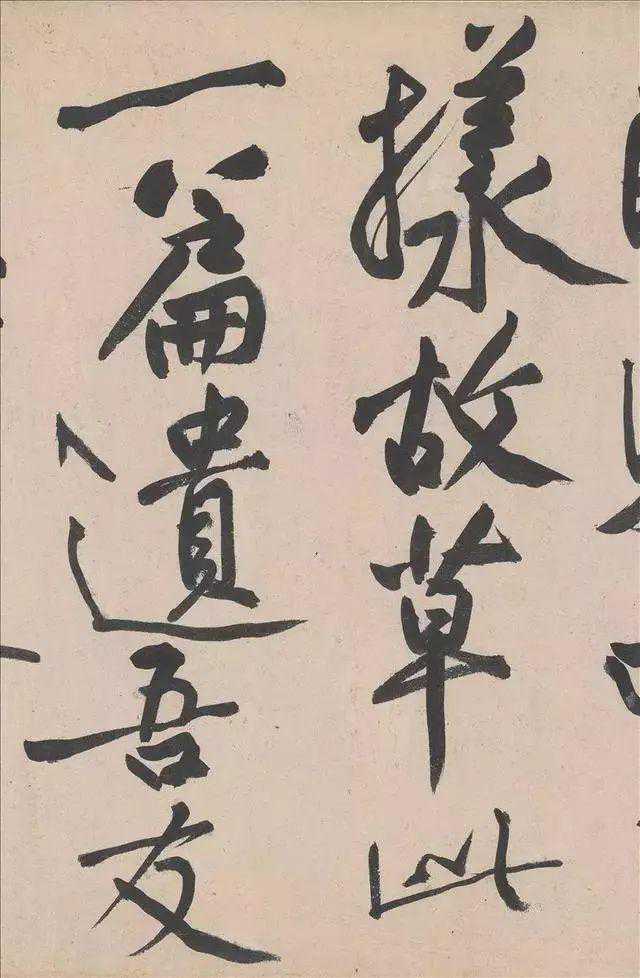 樣故草此
一篇遺吾友